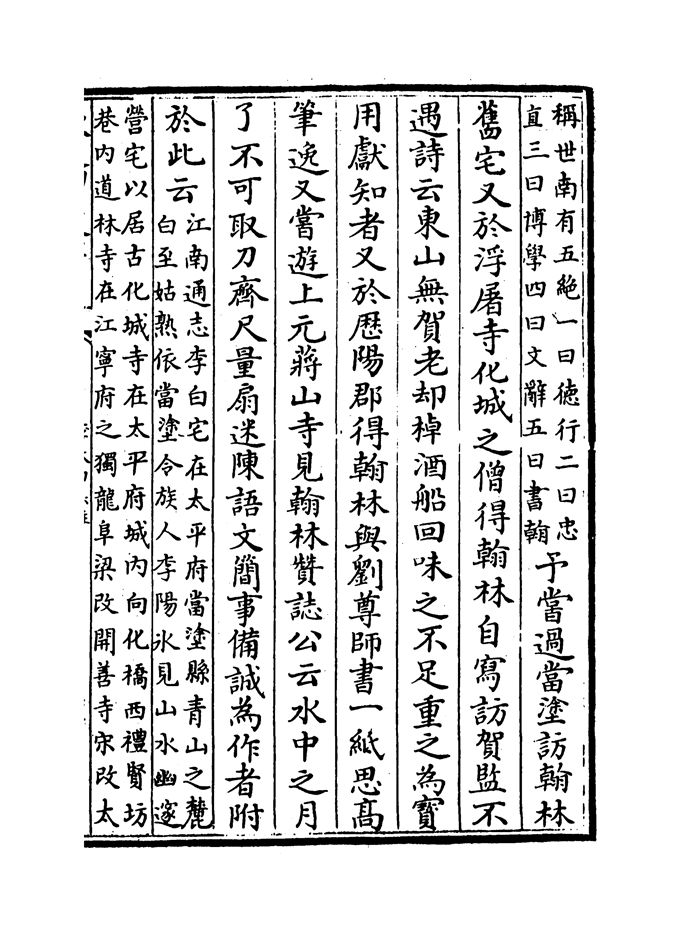 稱世南有五絶一曰德行二曰忠
直三曰博學四曰文辭五曰書翰
予嘗過當塗訪翰林
舊宅又於浮屠寺化城之僧得翰林自寫訪賀監不
遇詩云東山無賀老却棹酒船回味之不足重之為寳
用獻知者又於歴陽郡得翰林與劉尊師書一紙思髙
筆逸又嘗遊上元蔣山寺見翰林賛誌公云水中之月
了不可取刀齊尺量扇迷陳語文簡事備誠為作者附
於此云
江南通志李白宅在太平府當塗縣青山之麓
白至姑熟依當塗令族人李陽氷見山水幽邃
營宅以居古化城寺在太平府城内向化橋西禮賢坊
巷内道林寺在江寧府之獨龍阜梁改開善寺宋改太